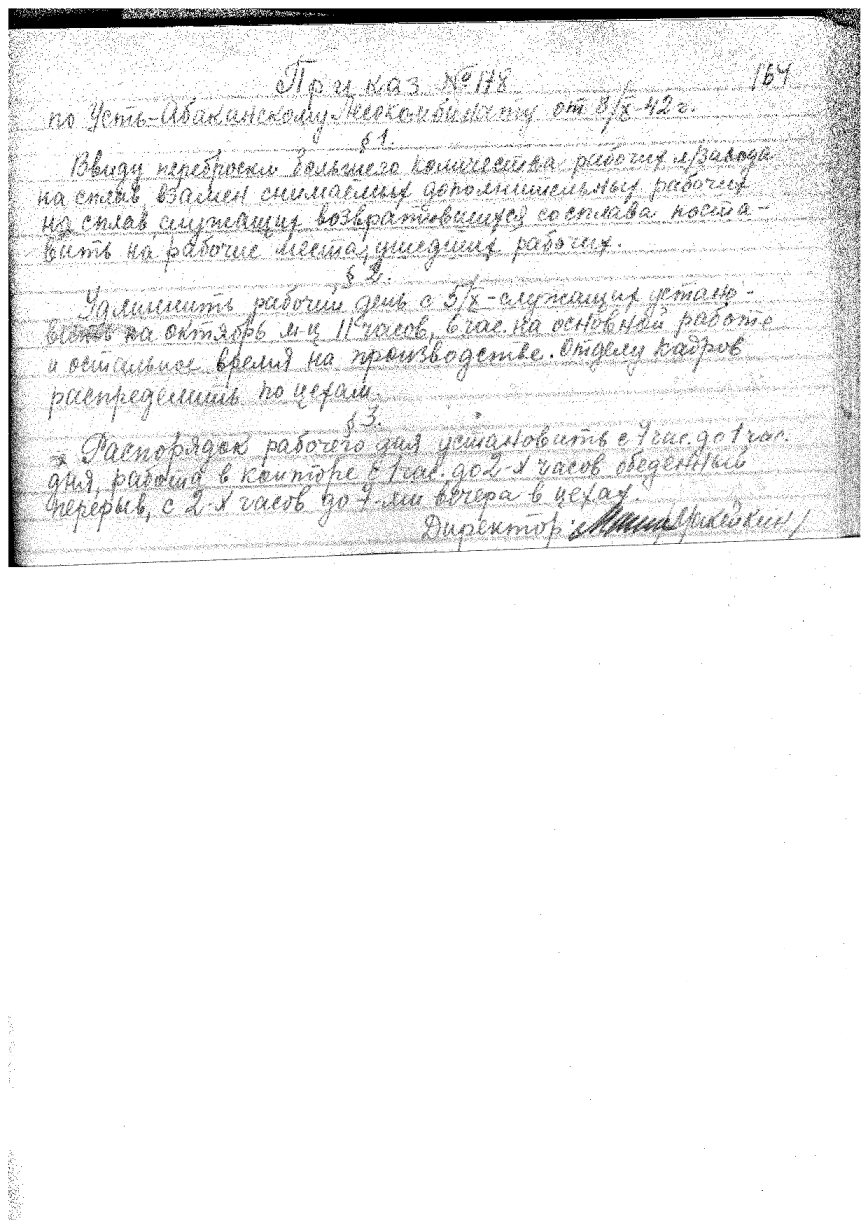 164
Приказ № 178
по Усть-Абаканскому Лесокомбинату от 3/X-42 г.
§ 1.
Ввиду переброски большего количества рабочих л/завода
на сплав, взамен снимаемых дополнительных рабочих
на сплав служащих возвратившихся со сплава поста-
вить на рабочие места, ушедших рабочих.
§ 2.
Удлиннить рабочий день с 5/X-служащих устано-
вить на октябрь м-ц 11 часов, 6 час. на основной работе
и остальное время на производстве. Отделу кадров
распределить по цехам.
§ 3.
Распорядок рабочего дня установить с 7 час. до 1 час.
дня, работа в конторе с 1 час. до 2-х часов обеденный
перерыв, с 2-х часов до 7-ми вечера в цехах.
Директор